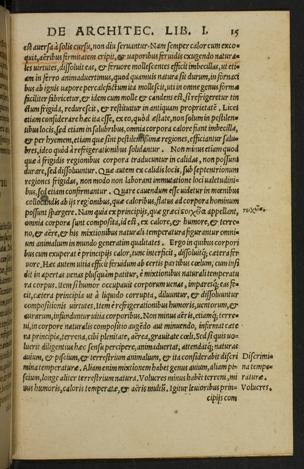 DE ARCHITEC. LIB. I. 15
est aversa à solis cursu, non diu servantur. Nam semper calor cum exco-
quit, aëribus firmitatem eripit, & vaporibus fervidis exugendo natura-
les virtutes, dissolvit eas, & fervore mollescentes efficit imbecillas, ut eti-
am in ferro animadvertimus, quod quamvis natura sit durum, in fornaci
bus ab ignis vapore percalefactum ita mollescit, uti in omne genus formæ
faciliter fabricetur, & idem cum molle & candens est, si refrigeretur tin
ctum frigida, redurescit, & restituitur in antiquam proprietatem. Licet
etiam considerare hæc ita esse, ex eo, quòd æstate, non solum in pestilen-
tibus locis, sed etiam in salubribus, omnia corpora calore fiant imbecilla,
& per hyemem, etiam quæ sint pestilentissimæ regiones, efficiantur salu-
bres, ideo quòd à refrigerationibus solidantur. Non minus etiam quæ
quà à frigidis regionibus corpora traducuntur in calidas, non possunt
durare, sed dissolvuntur. Quæ autem ex calidis locis, sub septentrionum
regiones frigidas, non modo non laborant immutatione loci valetudini-
bus, sed etiam confirmantur. Quare cavendum esse videtur in mœnibus
collocandis ab ijs regionibus, quæ caloribus, flatus ad corpora hominum
possunt spargere. Nam quia ex principijs, quæ græci στοιχεῖα appellant,
omnia corpora sunt composita, id est, ex calore, & humore, & terre-
no, & aëre, & his mixtionibus naturali temperatura figurantur omni-
um animalium in mundo generatim qualitates. Ergo in quibus corpori
bus cum exuperat è principijs calor, tunc interficit, dissolvitq́; cætera fer
vore. Hæc autem vitia efficit fervidum ab certis partibus cœlum, cum insi
dit in apertas venas plusquàm patitur, è mixtionibus naturali temperatu
ra corpus. Item si humor occupavit corporum venas, imparesq́; eas fe-
cit, cætera principia ut à liquido corrupta, diluuntur, & dissolvuntur
compositionis virtutes. Item è refrigerationibus humoris, ventorum, &
aurarum, infunduntur vitia corporibus. Non minus aëris, etiamq́; terre-
ni, in corpore naturalis compositio augēdo aut minuendo, infirmat cæte
ra principia, terrena, cibi plenitate, aërea, gravitate cœli. Sed si quis vo-
luerit diligentius hæc sensu percipere, animadvertat, attendatq́; naturas
avium, & piscium, & terrestrium animalium, & ita considerabit discri
mina temperaturæ. Aliam enim mixtionem habet genus avium, aliam pi-
scium, longe aliter terrestrium natura. Volucres minus habēt terreni, mi
nus humoris, caloris temperatè, & aëris multū. Igitur levioribus prin-
cipijs com
Discrimi
na tempe-
raturæ.
Volucres.